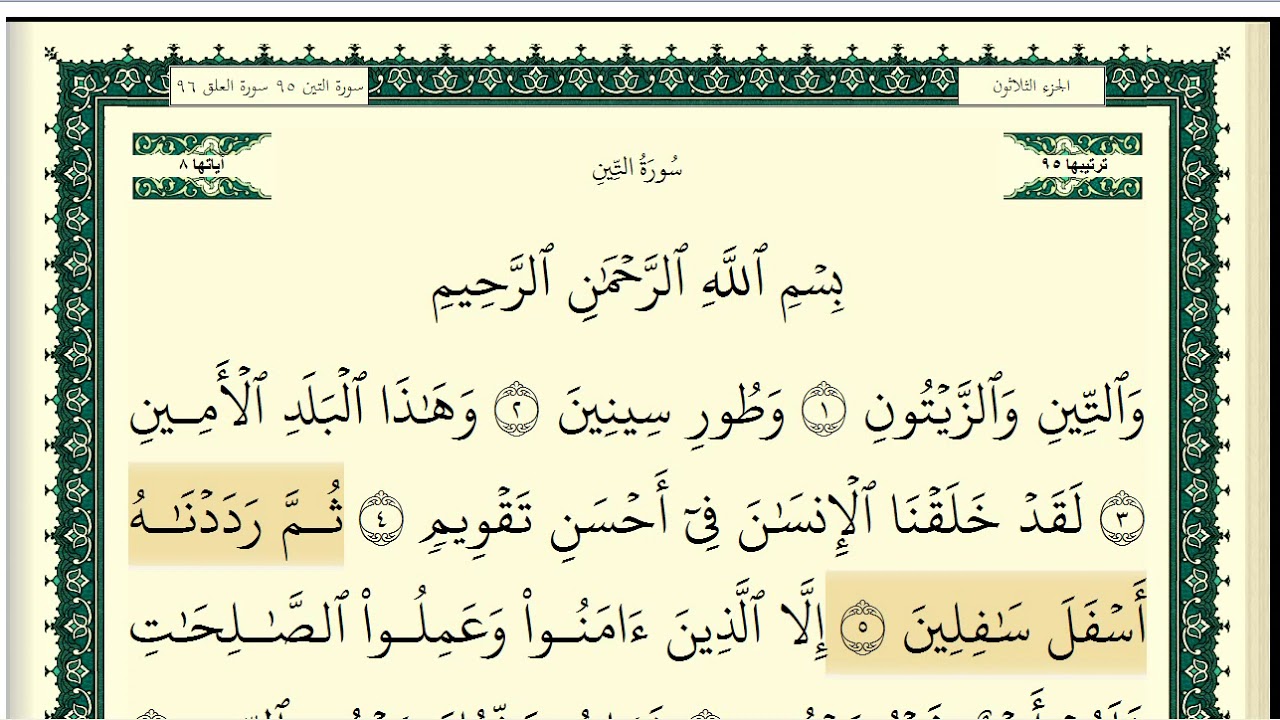 الجزء الثلاثون
سورة التين ٩٥ سورة العلق ٩٦
ترتيبها ٩٥
سُورَةُ التِّينِ
آياتها ٨
بِسْمِ ٱللَّهِ ٱلرَّحْمَٰنِ ٱلرَّحِيمِ
وَٱلتِّينِ وَٱلزَّيْتُونِ ١ وَطُورِ سِينِينَ ٢ وَهَٰذَا ٱلْبَلَدِ ٱلْأَمِينِ
٣ لَقَدْ خَلَقْنَا ٱلْإِنسَٰنَ فِىٓ أَحْسَنِ تَقْوِيمٍ ٤ ثُمَّ رَدَدْنَٰهُ
أَسْفَلَ سَٰفِلِينَ ٥ إِلَّا ٱلَّذِينَ ءَامَنُوا۟ وَعَمِلُوا۟ ٱلصَّٰلِحَٰتِ